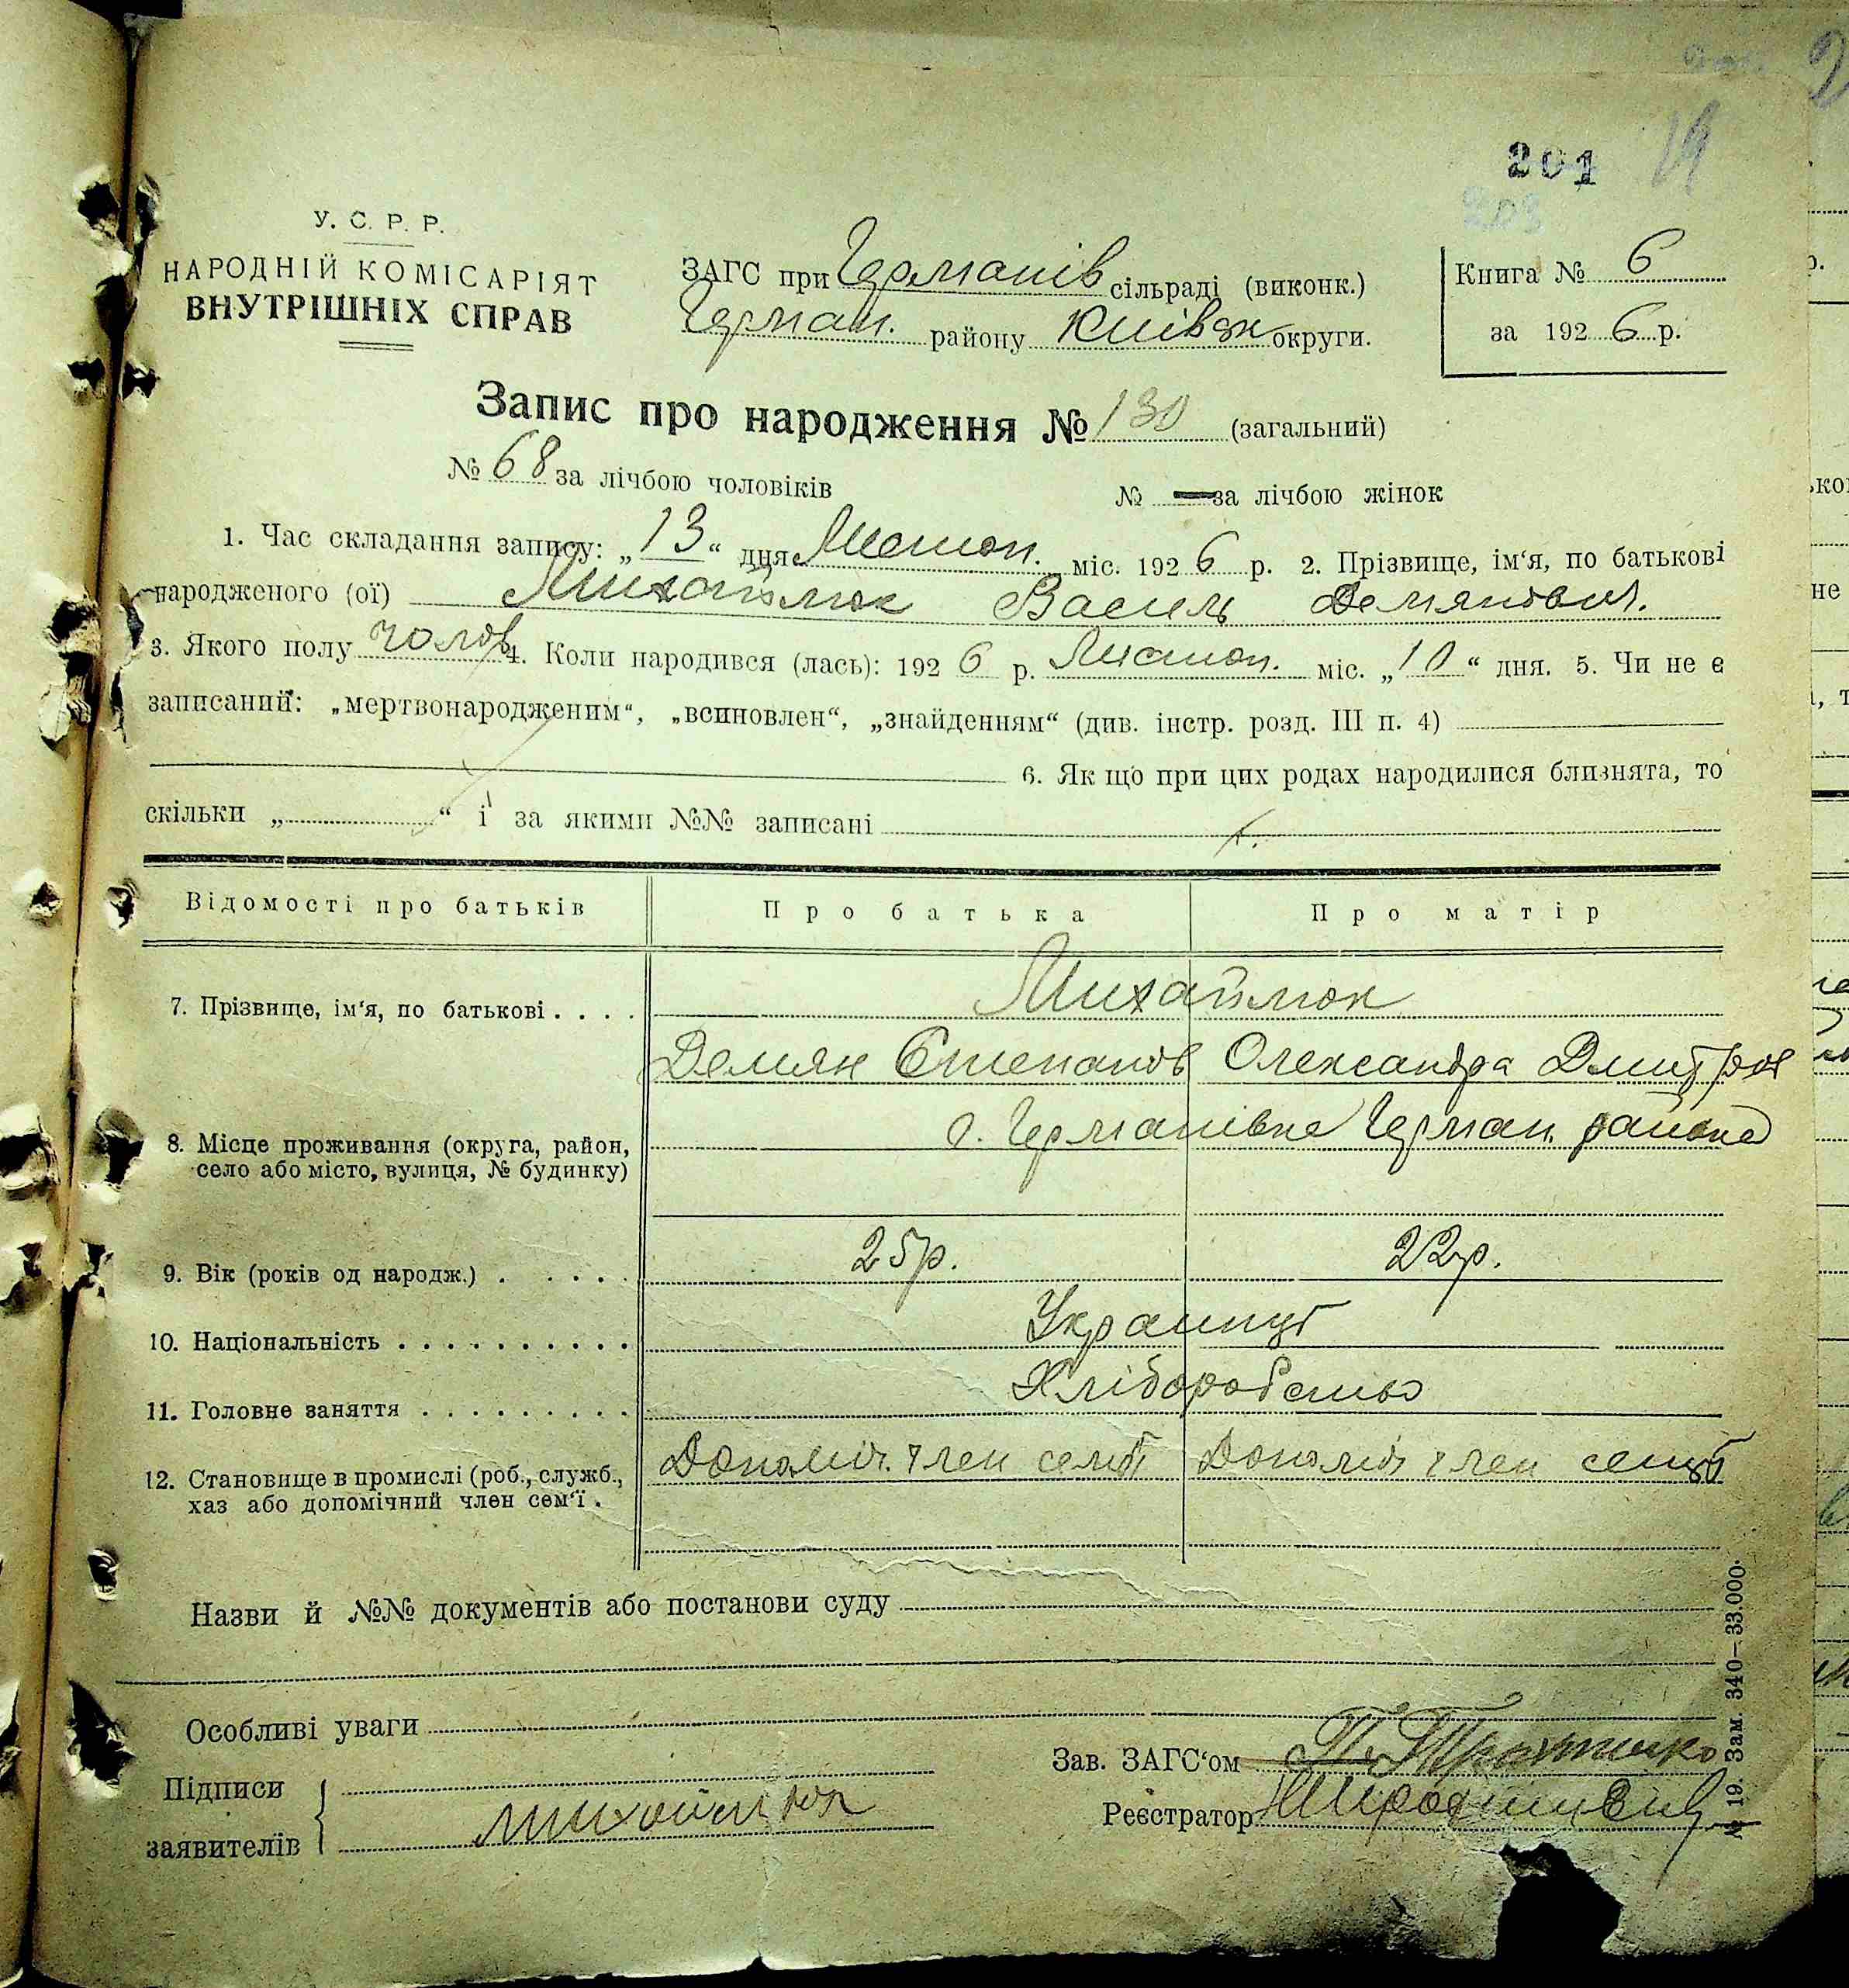 201
203
У. С. Р. Р.
НАРОДНІЙ КОМІСАРІЯТ
ВНУТРІШНІХ СПРАВ
ЗАГС при Германів сільраді (виконк.)
Герман. району Київськ округи.
Книга № 6
за 1926 р.
Запис про народження № 130 (загальний)
№ 68 за лічбою чоловіків № — за лічбою жінок
1. Час складання запису: „13“ дня міс. 1926 р. 2. Прізвище, ім‘я, по батькові
народженого (ої) Михайлюк Василь Демянович.
3. Якого полу чолов 4. Коли народився (лась): 1926 р. міс. „10“ дня. 5. Чи не є
записаний: „мертвонародженим“, „всиновлен“, „знайденням“ (див. інстр. розд. III п. 4)
6. Як що при цих родах народилися близнята, то
скільки „ “ і за якими №№ записані
Відомості про батьків Про батька Про матір
7. Прізвище, ім‘я, по батькові . . . . Михайлюк
Демян Степанов Олександра Дмитров
8. Місце проживання (округа, район, с. Германівка Герман. района
село або місто, вулиця, № будинку)
9. Вік (років од народж.) . . . . . 25р. 22р.
10. Національність . . . . . . . . . . Українці
11. Головне заняття . . . . . . . . . Хліборобство
12. Становище в промислі (роб., служб., Допоміч. член семї Допоміч член семї
хаз або допомічний член сем‘ї .
Назви й №№ документів або постанови суду
Особливі уваги
Зав. ЗАГС‘ом
Підписи
заявителів Михайлюк
Реєстратор
№ 19. Зам. 340—33.000.